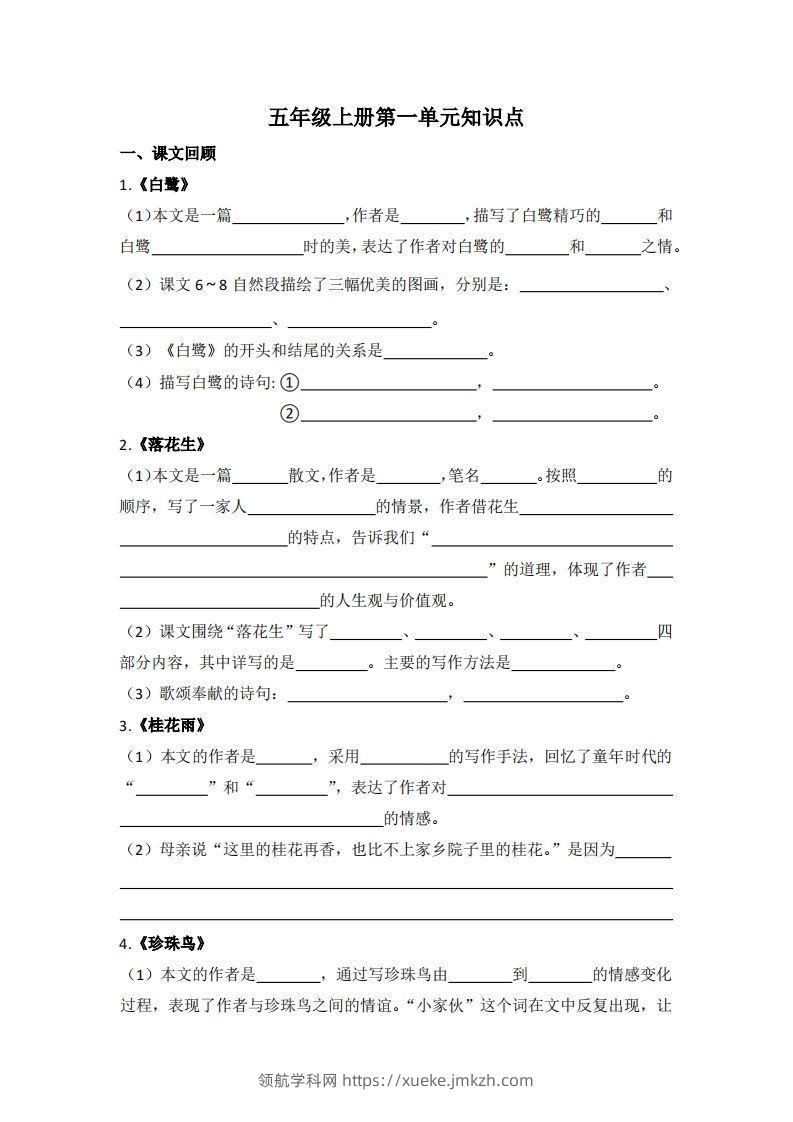 五年级上册第一单元知识点
一、课文回顾
1.《白鹭》
（1）本文是一篇______________，作者是________，描写了白鹭精巧的_______和
白鹭___________________时的美，表达了作者对白鹭的________和_______之情。
（2）课文 6～8 自然段描绘了三幅优美的图画，分别是：__________________、
___________________、__________________。
（3）《白鹭》的开头和结尾的关系是_____________。
（4）描写白鹭的诗句：①______________________，____________________。
②______________________，____________________。
2.《落花生》
（1）本文是一篇_______散文，作者是________，笔名_______。按照__________的
顺序，写了一家人________________的情景，作者借花生___________________
_____________________的特点，告诉我们“______________________________
______________________________________________”的道理，体现了作者___
_________________________的人生观与价值观。
（2）课文围绕“落花生”写了_________、_________、_________、_________四
部分内容，其中详写的是_________。主要的写作方法是_____________。
（3）歌颂奉献的诗句：____________________，____________________。
3.《桂花雨》
（1）本文的作者是_______，采用___________的写作手法，回忆了童年时代的
“_________”和“_________”，表达了作者对____________________________
_________________________________的情感。
（2）母亲说“这里的桂花再香，也比不上家乡院子里的桂花。”是因为_______
_____________________________________________________________________
_____________________________________________________________________
4.《珍珠鸟》
（1）本文的作者是________，通过写珍珠鸟由________到________的情感变化
过程，表现了作者与珍珠鸟之间的情谊。“小家伙”这个词在文中反复出现，让
领航学科网 https://xueke.jmkzh.com